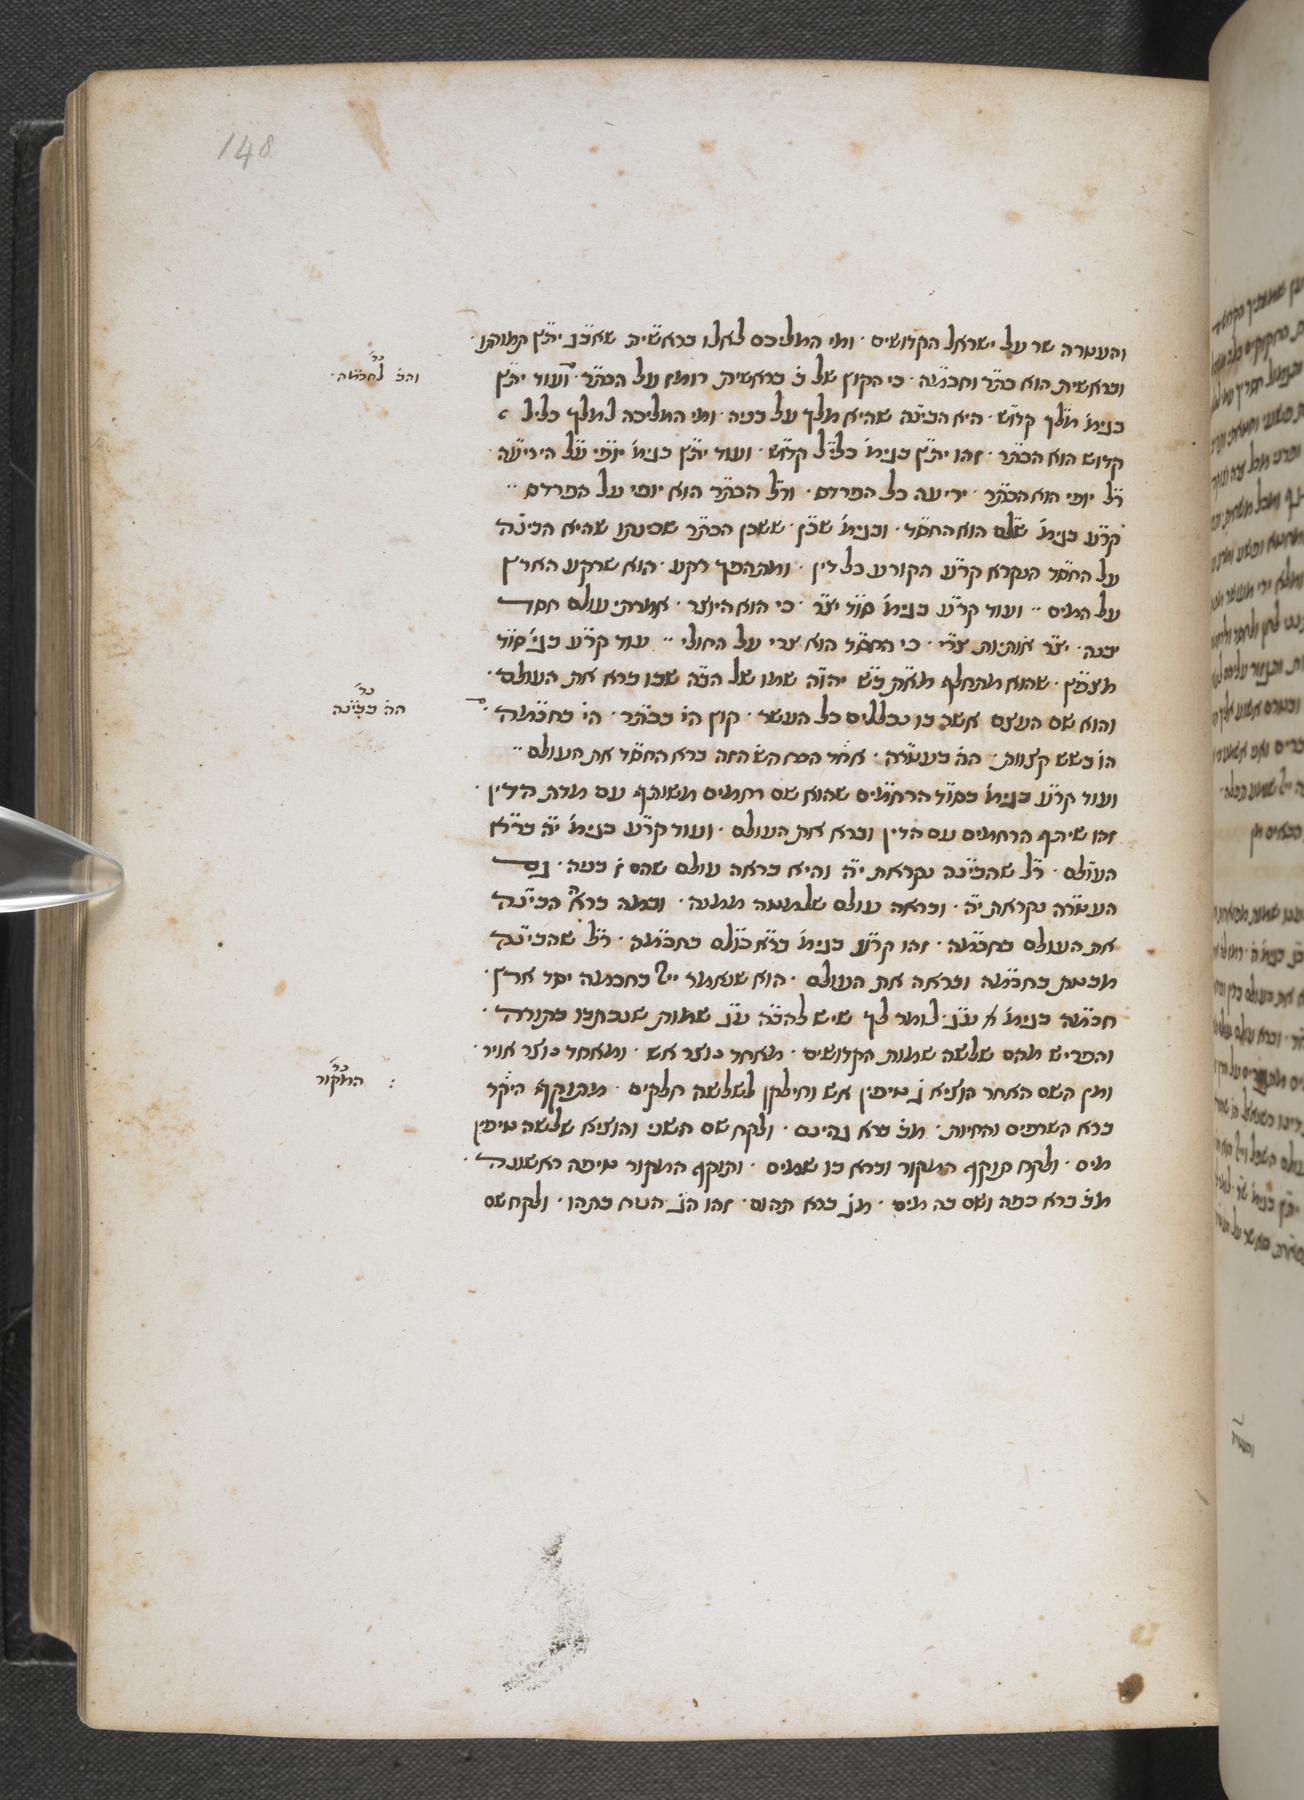 148
והעטרה שר על ישראל הקדושים · ומי המליכם לאלו בראשית שאבג יתץ תמותו ·
ובראשית הוא כתר וחכמה · כי הקוץ של ב בראשית רומז על הכתר · ועוד יתץ
בגימ מלך קדוש · היא הבינה שהיא מלך על בניה · ומי המליכה למלך כליל
קדוש הוא הכתר · זהו יתץ בגימ כליל קדוש · ועוד יתץ בגימ יופי על היריעה
רל יופי הוא הכתר · יריעה כל הפרדס · ורל הכתר הוא יופי על הפרדס ··
קרע בגימ שלם הוא החסד · ובגימ שכן · ששכן הכתר שכינתו שהיא הבינה
על החסד הנקרא קרע הקורע כל דין · ומתהפך רקע · הוא שרקע הארץ
על המים ·· ועוד קרע בגימ סוד יצר · כי הוא היוצר · אמרתי עולם חסד
יבנה · יצר אותיות צרי · כי החסד הוא צרי על החולי ·· עוד קרע בגי סוד
מצפץ · שהוא מתחלף מאת בש יהוה שמו של הבה שבו ברא את העולם ·
והוא שם העצם אשר בו נכללים כל העשר · קוץ הי בכתר · הי בחכמה ·
הו בשש קצוות · הה בעטרה · אחד הבח השם הזה ברא החסד את העולם ··
ועוד קרע בגימ בסוד הרחמים שהוא שם רחמים משותף עם מדת הדין ·
זהו שיתף הרחמים עם הדין וברא את העולם · ועוד קרע בגימ יה ברא
העולם · רל שהבינה נקראת יה והיא בראה עולם שהם ז בניה · גם
העטרה נקראת יה · ובראה עולם שלמטה ממנה · ובמה ברא הבינה
את העולם בחכמה · זהו קרע בגימ ברא כולם בחכמה · רל שהבינה
מבטת בחכמה ובראה את העולם · הוא שנאמר ייי בחכמה יסד ארץ
חכמה בגימ א עג · לומר לך שיש להבה עג שמות שנכתבו בתורה ·
והפריש מהם שלשה שמות הקדושים · מאחד נוצר אש · ומאחד נוצר אויר ·
ומן השם האחר הוציא ג טיפין אש וחילקן לשלשה חלקים · מהתוקף היקר
ברא השרפים והחיות · מב ברא גהינם · ולקח שם השני והוציא שלשה טיפין
מים · ולקח תוקף המקור וברא בו שמים · ותוקף המקור טיפה ראשונה
מב ברא כפה ושם בה מים · מג ברא תהום · זהו הג הטח בתהו · ולקח שם
נר
והב לחכמה ·
נר
הה בבינה
נר
המקור